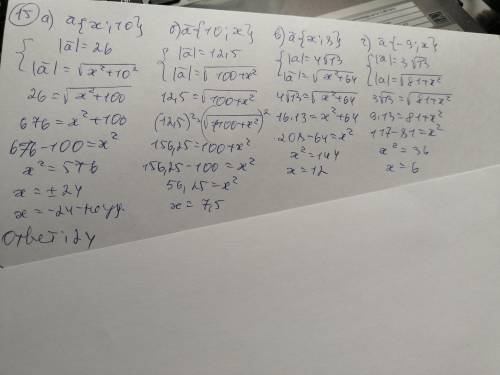 15 а) ā{x; 10}
{ |ā| = 26
|ā| = √x²+10²
26 = √x²+100
676 = x²+100
676-100 = x²
x² = 576
x = ± 24
x = -24 - не уд.
Ответ: 24
б) ā{10; x}
{ |ā| = 12,5
|ā| = √100+x²
12,5 = √100+x²
(12,5)² = (√100+x²)²
156,25 = 100+x²
156,25-100 = x²
56,25 = x²
x = 7,5
в) ā{x; 8}
{ |ā| = 4√13
|ā| = √x²+64
4√13 = √x²+64
16·13 = x²+64
208-64 = x²
x² = 144
x = 12
г) ā{-9; x}
{ |ā| = 3√13
|ā| = √81+x²
3√13 = √81+x²
9·13 = 81+x²
117-81 = x²
x² = 36
x = 6